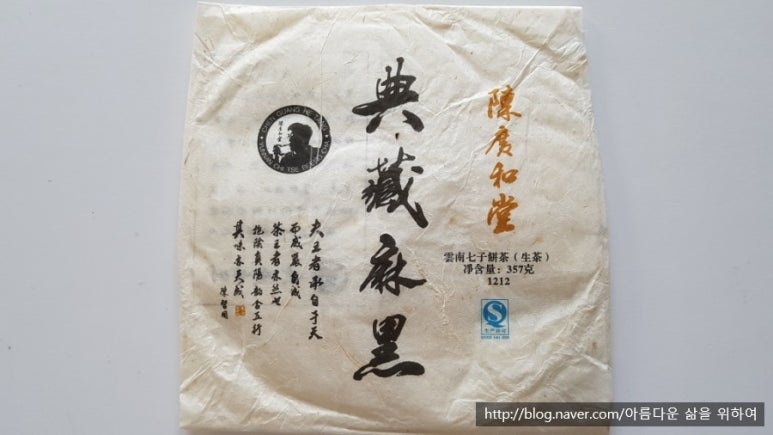 陳廣和堂
典藏麻黑
雲南七子餅茶（生茶）
凈含量：357克
1212
CHEN GUANG HE TANG
YUNNAN CHI TSE BEENG CHA
夫王者承自于天
而威嚴自成
茶王者亦然也
抱陰負陽韵含五行
其味亦天成
陳智同
QS
生产许可
http://blog.naver.com/아름다운 삶을 위하여